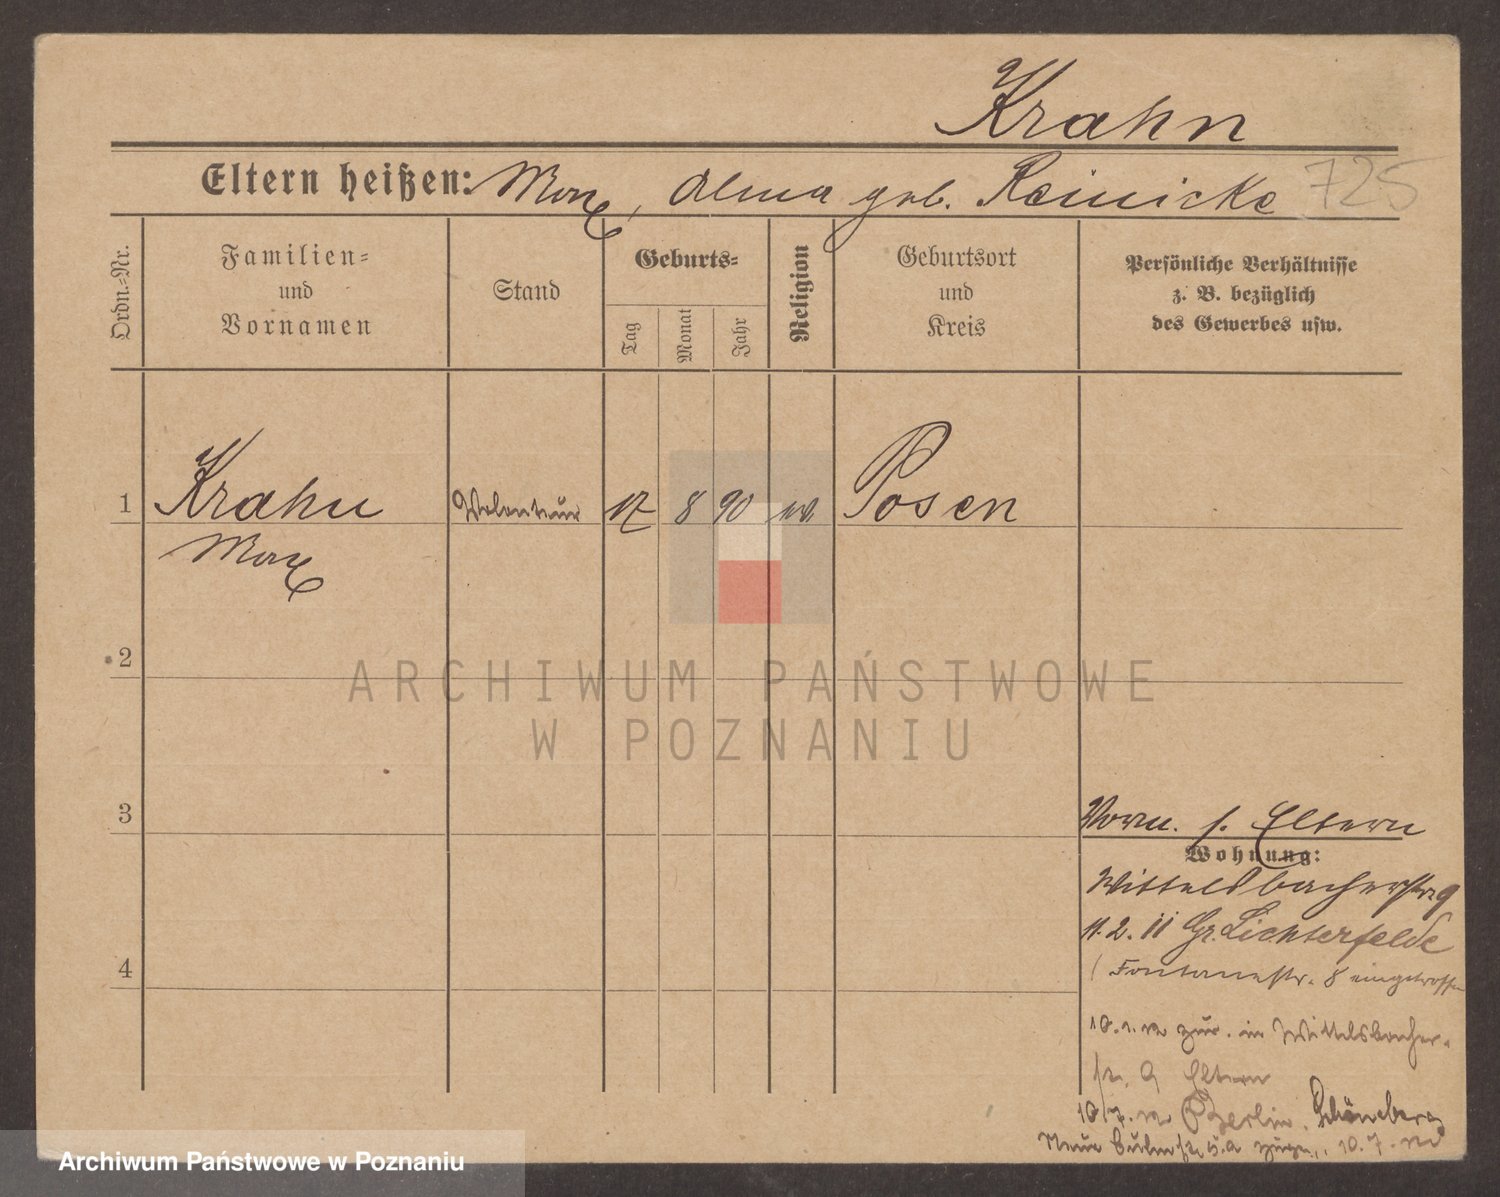 Krahn
Eltern heißen: Max, Alma geb. Reinicke 725
Ordn.=Nr.
Familien=
und
Vornamen
Stand
Geburts=
Tag
Monat
Jahr
Religion
Geburtsort
und
Kreis
Persönliche Verhältnisse
z. B. bezüglich
des Gewerbes usw.
1 Krahn Volonteur 17 8 90 ev. Posen
Max
2
ARCHIWUM PAŃSTWOWE
W POZNANIU
3
Vorm. s. Eltern
Wohnung:
Wittelsbacherstr. 9
11. 2. 11 Gr. Lichterfelde
Fontanestr. 8 eingetroffen
4
10. 1. 12 zur. in Wittelsbacher-
str. 9 Eltern
10/7. 12 Berlin. Schöneberg
Neue Culmstr. 5.a 10. 7. 12
Archiwum Państwowe w Poznaniu